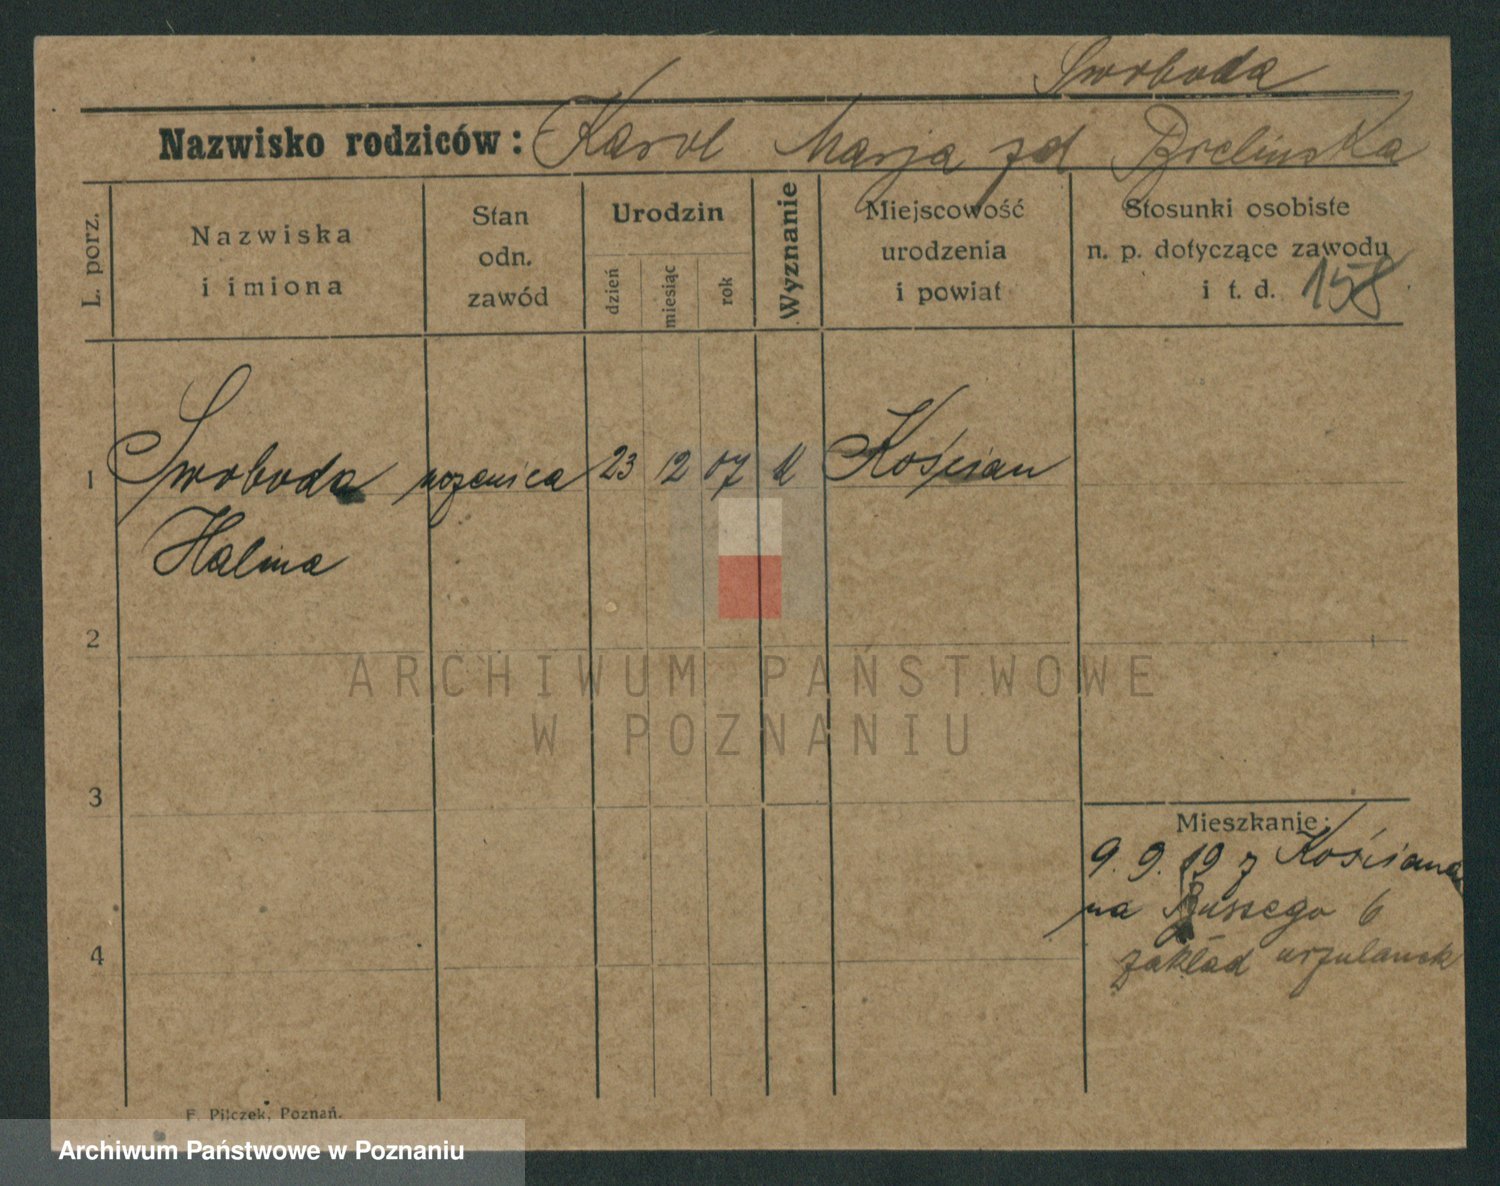 Swoboda
Nazwisko rodziców: Karol Marja zd Bielinska
L. porz.
Nazwiska
i imiona
Stan
odn.
zawód
Urodzin
dzień
miesiąc
rok
Wyznanie
Miejscowość
urodzenia
i powiat
Stosunki osobiste
n. p. dotyczące zawodu
i t. d. 158
1 Swoboda uczenica 23 12 07 k Kościan
Halina
2
3
4
Mieszkanie:
9. 9. 19 z Kościana
na Bussego 6
zakład urzulanek
F. Pilczek, Poznań.
ARCHIWUM PAŃSTWOWE
W POZNANIU
Archiwum Państwowe w Poznaniu